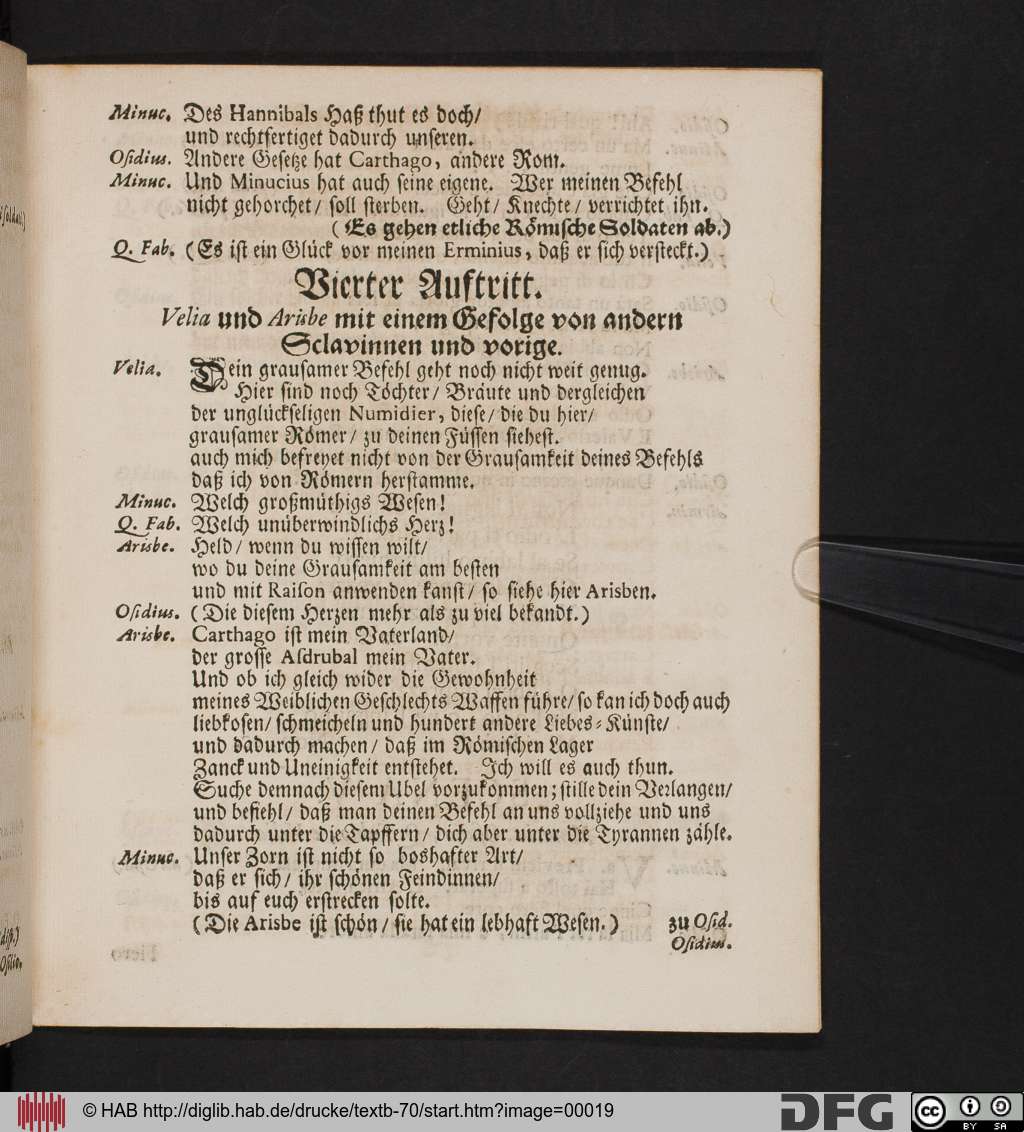 Minuc. Des Hannibals Haß thut es doch/
und rechtfertiget dadurch unseren.
Osidius. Andere Gesetze hat Carthago, andere Rom.
Minuc. Und Minucius hat auch seine eigene. Wer meinen Befehl
nicht gehorchet/ soll sterben. Geht/ Knechte/ verrichtet ihn.
(Es gehen etliche Römische Soldaten ab.)
Q. Fab. (Es ist ein Glück vor meinen Erminius, daß er sich versteckt.)
Vierter Auftritt.
Velia und Arisbe mit einem Gefolge von andern
Sclavinnen und vorige.
Velia. Dein grausamer Befehl geht noch nicht weit genug.
Hier sind noch Töchter/ Bräute und dergleichen
der unglückseligen Numidier, diese/ die du hier/
grausamer Römer/ zu deinen Füssen siehest.
auch mich befreyet nicht von der Grausamkeit deines Befehls
daß ich von Römern herstamme.
Minuc. Welch großmüthigs Wesen!
Q. Fab. Welch unüberwindlichs Herz!
Arisbe. Held/ wenn du wissen wilt/
wo du deine Grausamkeit am besten
und mit Raison anwenden kanst/ so siehe hier Arisben.
Osidius. (Die diesem Herzen mehr als zu viel bekandt.)
Arisbe. Carthago ist mein Vaterland/
der grosse Asdrubal mein Vater.
Und ob ich gleich wider die Gewohnheit
meines Weiblichen Geschlechts Waffen führe/ so kan ich doch auch
liebkosen/ schmeicheln und hundert andere Liebes-Künste/
und dadurch machen/ daß im Römischen Lager
Zanck und Uneinigkeit entstehet. Ich will es auch thun.
Suche demnach diesem Ubel vorzukommen; stille dein Verlangen/
und befiehl/ daß man deinen Befehl an uns vollziehe und uns
dadurch unter die Tapffern/ dich aber unter die Tyrannen zähle.
Minuc. Unser Zorn ist nicht so boshafter Art/
daß er sich/ ihr schönen Feindinnen/
bis auf euch erstrecken solte.
(Die Arisbe ist schön/ sie hat ein lebhaft Wesen.) zu Osid.
Osidius.
© HAB http://diglib.hab.de/drucke/textb-70/start.htm?image=00019
DFG
cc BY SA